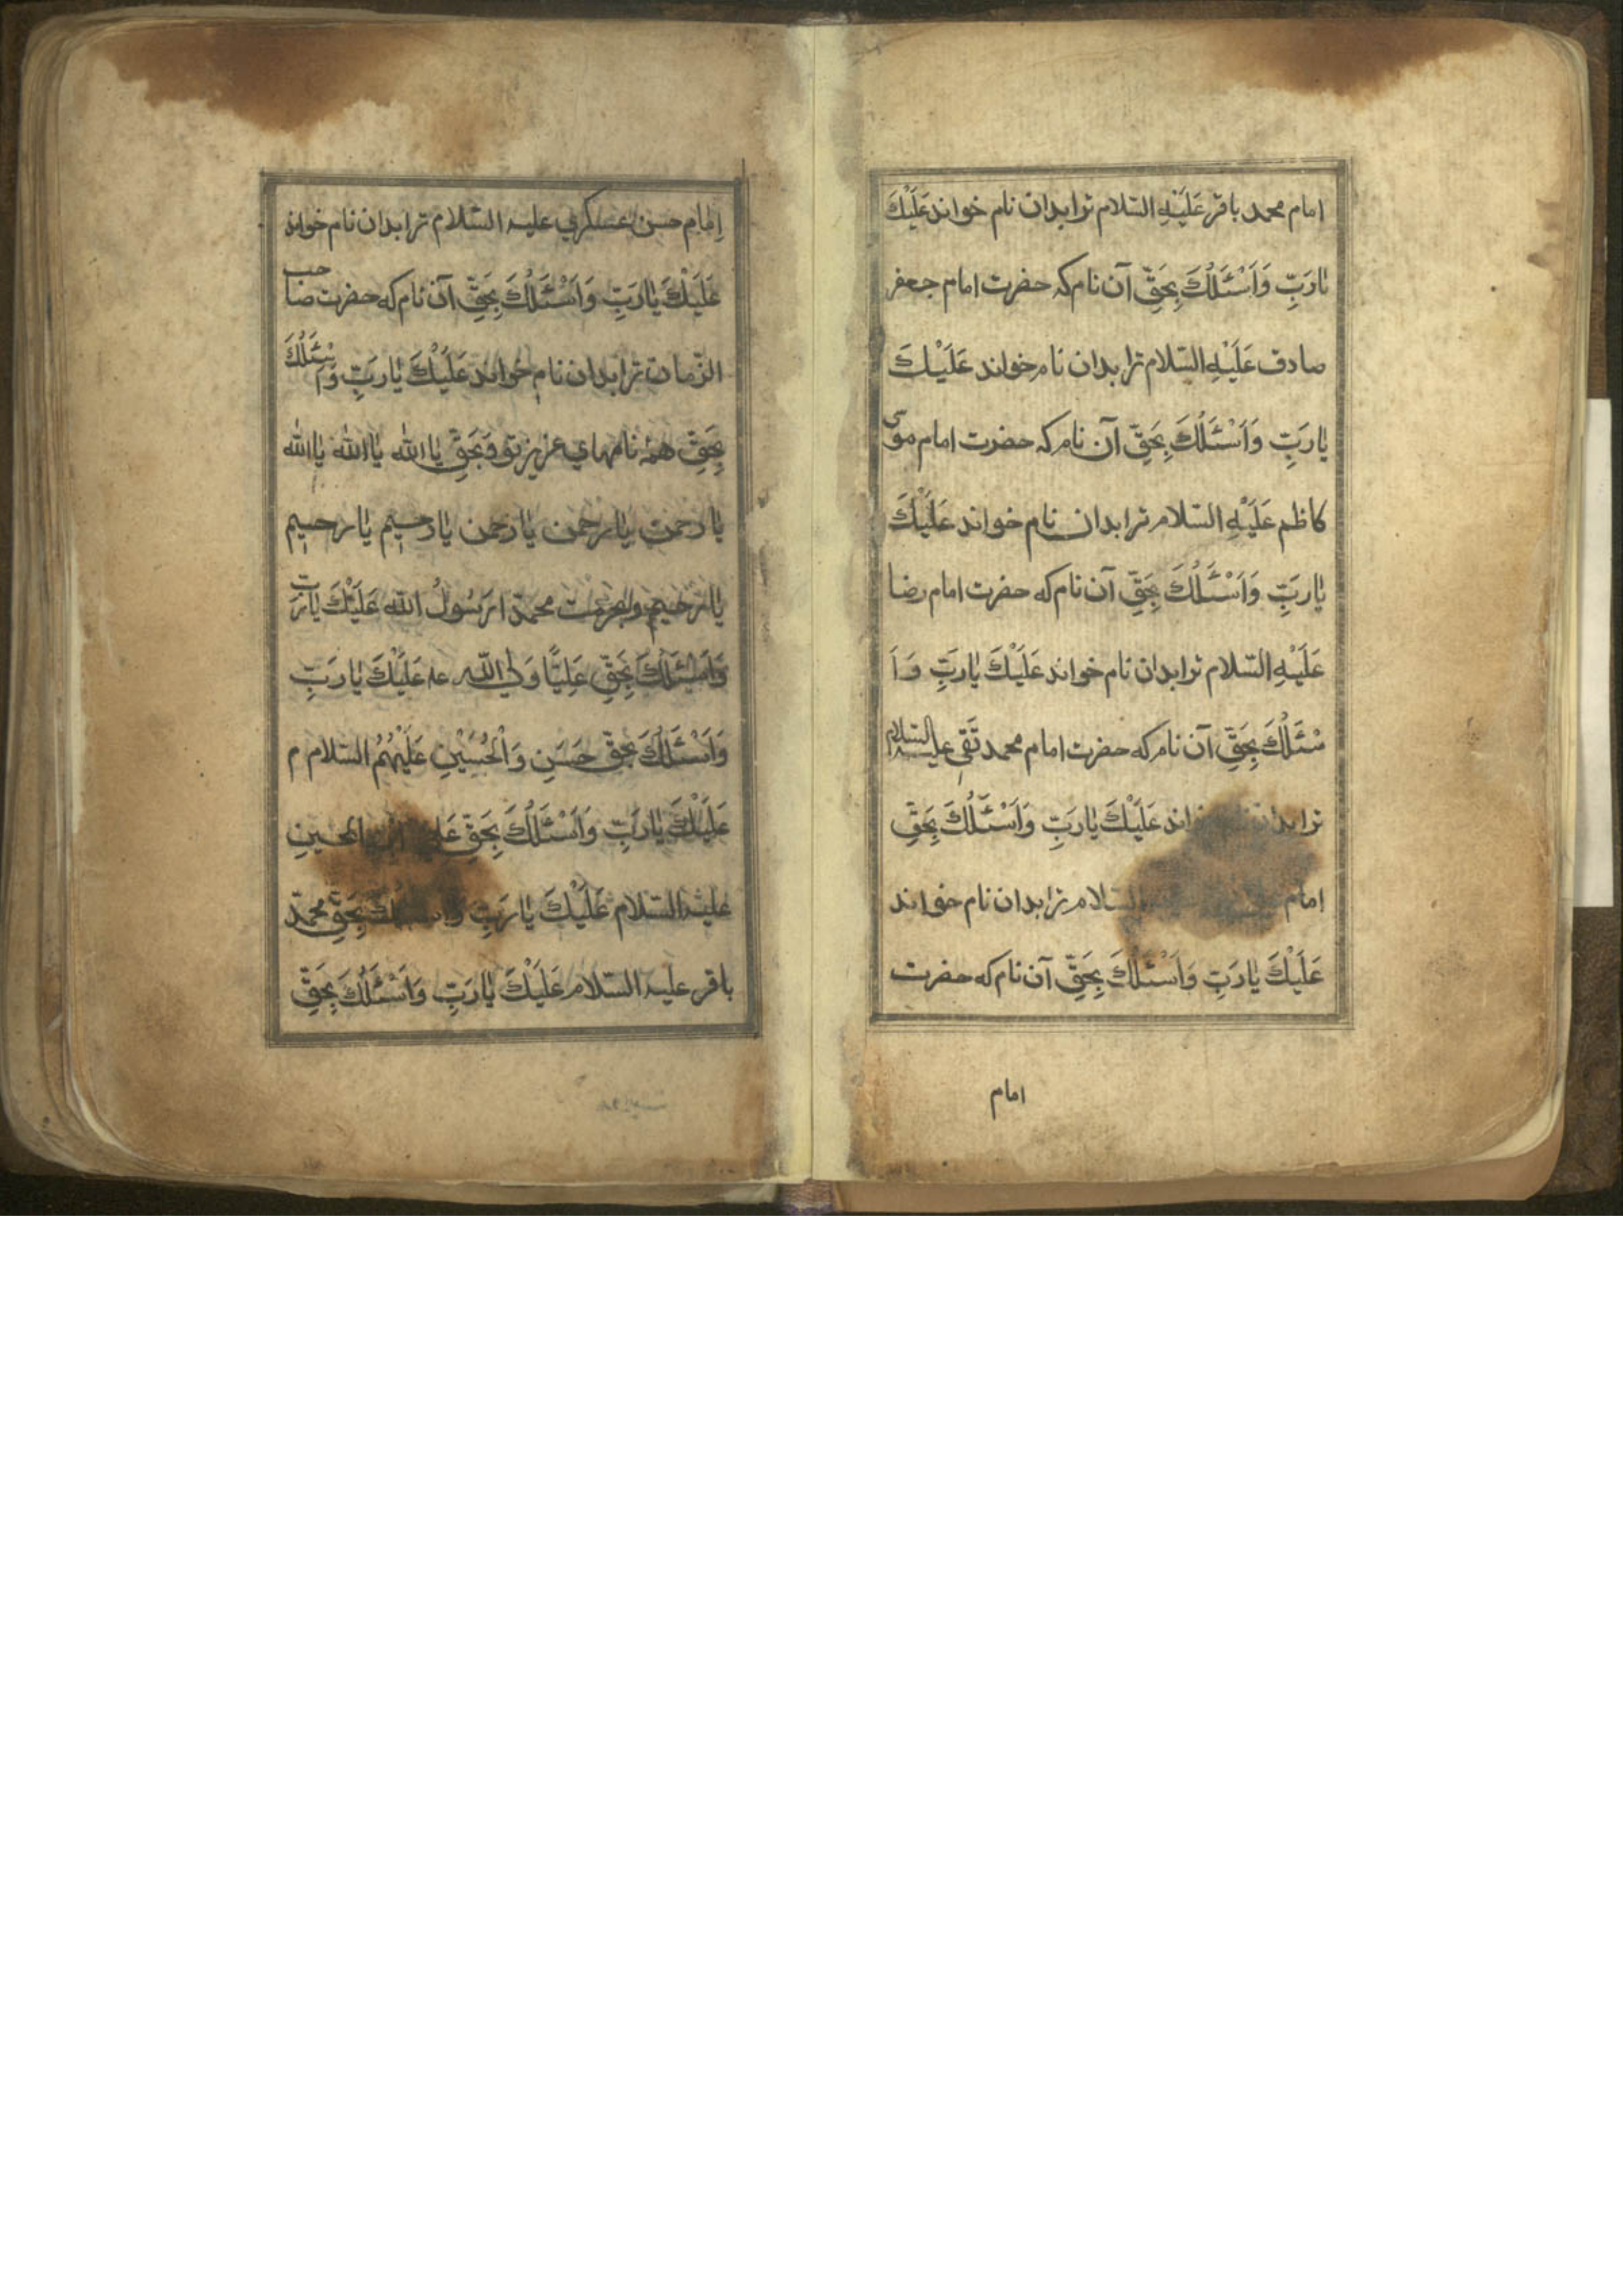 امام محمد باقر عَلَیْهِ السّلام ترا بدان نام خواند عَلَیْكَ
یارَبِّ وَاَسْئَلُكَ بِحَقِّ آن نام که حضرت امام جعفر
صادق عَلَیْهِ السّلام ترا بدان نام خواند عَلَیْكَ
یارَبِّ وَاَسْئَلُكَ بِحَقِّ آن نام که حضرت امام موسی
کاظم عَلَیْهِ السّلام ترا بدان نام خواند عَلَیْكَ
یارَبِّ وَاَسْئَلُكَ بِحَقِّ آن نام که حضرت امام رضا
عَلَیْهِ السّلام ترا بدان نام خواند عَلَیْكَ یارَبِّ وَاَ
سْئَلُكَ بِحَقِّ آن نام که حضرت امام محمد تَقی علیه السّلام
ترا بدان خواند عَلَیْكَ یارَبِّ وَاَسْئَلُكَ بِحَقِّ
امام السّلام ترا بدان نام خواند
عَلَیْكَ یارَبِّ وَاَسْئَلُكَ بِحَقِّ آن نام که حضرت
امام
اِمام حسن عسکری علیه السّلام ترا بدان نام خواند
عَلَیْكَ یارَبِّ وَاَسْئَلُكَ بِحَقِّ آن نام که حضرت صاحب
الزّمان ترا بدان نام خواند عَلَیْكَ یارَبِّ وَاَسْئَلُكَ
بِحَقِّ همهٔ نامهای عزیز تو وَبَحَقِّ یا الله یا الله یا الله
یا رحمن یا رحمن یا رحمن یا رحیم یا رحیم
یا رحیم وبحرمت محمدّ ارَسُولُ الله عَلَیْكَ یارَبِّ
وَاَسْئَلُكَ بِحَقِّ عَلِیًّا وَلی الله عم عَلَیْكَ یارَبِّ
وَاَسْئَلُكَ بحَقِّ حَسَنِ وَالْحُسَیْنِ عَلَیْهُمُ السّلام م
عَلَیْكَ یارَبِّ وَاَسْئَلُكَ بِحَقِّ عَلی ابن الحسینِ
علیْه السّلام عَلَیْكَ یارَبِّ وَاَسْئَلُكَ بِحَقِّ محمدّ
باقر علیه السّلام عَلَیْكَ یارَبِّ وَاَسْئَلُكَ بِحَقِّ